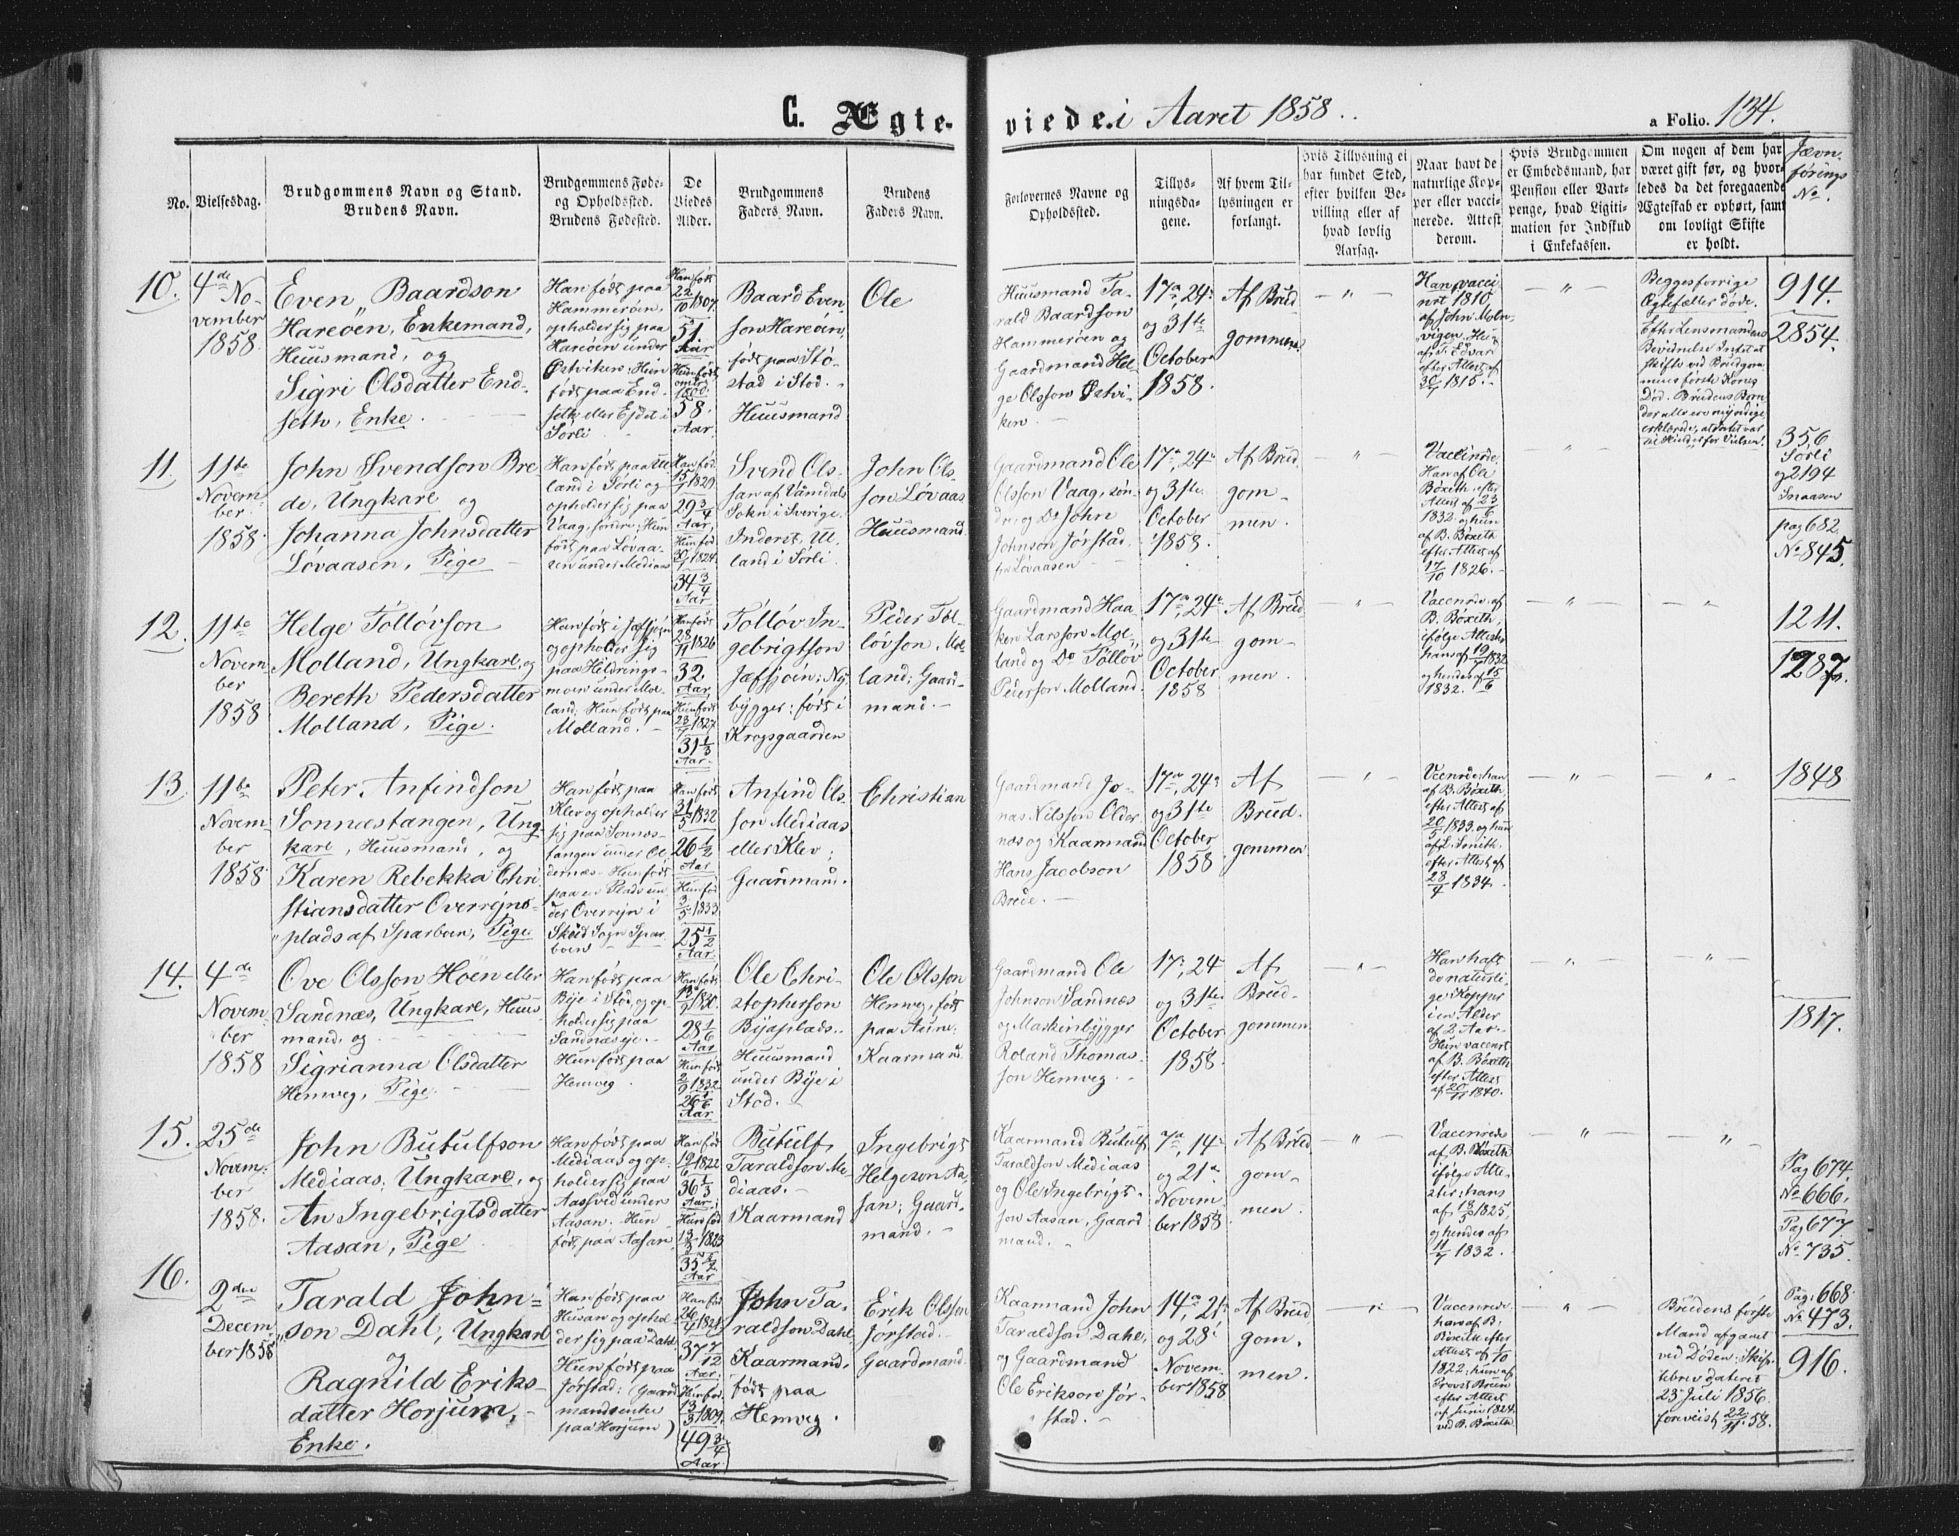 C. Ægte-
viede. i Aaret 1858.
a Folio. 134.
No.
Vielsesdag.
Brudgommens Navn og Stand.
Brudens Navn.
Brudgommens Føde-
og Opholdssted.
Brudens Fødested.
De
Viedes
Alder.
Brudgommens
Faders Navn.
Brudens
Faders Navn.
Forlovernes Navne og
Opholdssted.
Tillys-
ningsda-
gene.
Af hvem Til-
lysningen er
forlangt.
Hvis Tillysning ei
har fundet Sted,
efter hvilken Be-
villing eller af
hvad lovlig
Aarsag.
Naar havt de
naturlige Kop-
per eller vacci-
nerede. Attest
derom.
Hvis Brudgommen
er Embedsmand, har
Pension eller Vart-
penge, hvad Ligiti-
mation for Indskud
i Enkekassen.
Om nogen af dem har
været gift før, og hvor-
ledes da det foregaaende
Ægteskab er ophørt, samt
om lovligt Skifte
er holdt.
Jævn-
førings
No.
10.
4de No-
vember
1858.
Even Baardson
Hareöen, Enkemand,
Huusmand, og
Sigri Olsdatter End-
seth, Enke.
Han født paa
Hammerøen,
opholder sig paa
Hareöen under
Østviken; Hun
født paa End-
seth eller Ejdet i
Sørli
Han født
22/10 1807.
51
Aar
Hun født
omtr.
1800.
58.
Aar.
Baard Even-
son Hareöin,
født paa Stø-
stad i Stod.
Huusmand
Ole
Huusmand Ta-
rald Baardson
Hammerøen og
Gaardmand Hel-
ge Olsson Østvi-
ken.
17de, 24de
og 31te
October
1858.
Af Brud
gommen.
Han vacci
nrt 1810,
af John Moln-
vigen. Hun
af T. Edvar
30/7 1815.
Begges forrige
Egtefæller døde.
Efter Lensmandens
Bevidnelse Intet at
skifte ved Brudgom
mens første Kones
Død. Brudens Børn
der alle ere myndige
914.
2854.
11.
11te
Novem-
ber
1858.
John Svendson Bre-
de, Ungkarl og
Johanna Johnsdatter
Løvaasen, Pige
Han født paa Ul-
land i Sørli og
opholder sig paa
Vaag, søndre; Hun
født paa Løvaa-
sen under Mediaas
Han fød.
15/1 1829
29 3/4
Aar;
Hun fød
30/1 1824.
34 3/4
Aar
Svend Ols-
søn af Vamdals
Sokn i Sverige.
Inderst, Ul-
land i Sørli.
John Ols-
søn Løvaas
Huusmand
Gaardmand Ole
Olsson Vaag, søn-
dre, og Do John
Johnson Jørstad
fra Løvaasen
17de, 24de
og 31te
October
1858.
Af Brud
gom-
men.
Vaccinrde
Han af Ole
Böxeth, efter
Attest af 23/6
1832. og hun
af B. Böxeth
efter Attest af
17/10 1826.
356
Sørli
og 2194
Snaasen
pag 682
No 845.
12.
11te
Novem
ber
1858
Helge Tölløvson
Molland, Ungkarl, og
Bereth Pedersdatter
Molland, Pige.
Han født i Jæfsjøen
og opholder sig
paa Heldrings-
moen under Mol-
land; Hun født paa
Molland.
Han født
28/11 1826
32
Aar
Hun født
23/7 1827.
31 1/3
Aar.
Tölløv In-
gebrigtson
Jæfsjöin; Ny-
bygger: født i
Krogsgaarden
Peder Töl-
løvson, Mol-
land; Gaard-
mand.
Gaardmand Haa-
ken Larsson Mol-
land og Do Tölløv
Pederson Molland.
17de, 24de
og 31te
October
1858
Af Brud
gom-
men.
Vaccnrde af
B. Böxeth,
ifølge Attester
hans af 19/7 1832
og hendes af 15/6
1832.
1211.
1287.
13.
11te
Novem
ber
1858
Peter Anfindson
Sonnæstangen, Ung
karl, Huusmand, og
Karen Rebekka Chri
stiansdatter Overrejns-
plads af Sparboen, Pige
Han født paa
Klev og opholder
sig paa Sonnæs-
tangen under Ol-
dernæs. Hun født
paa en Plads un
der Overrejn i
Skeid Sogn Spar
boen
Han født
31/5 1832
26 1/2
Aar
Hun fød
3/5 1833.
25 1/2
Aar.
Anfind Ols-
søn Mediaas
eller Klev;
Gaardmand.
Christian
Gaardmand Jo-
nas Nilsson Older
næs og Kaarmand
Hans Jacobson
Brede.
17de, 24de
og 31te
October
1858
Af
Brud-
gommen
Vccnrde; han
af B. Böxeth
efter Attest af
20/5 1833. og hun
af L. Smith,
efter Attest af
28/4 1834.
1848
14.
4de
Novem
ber
1858
Ove Olsson Höen eller
Sandnæs, Ungkarl, Huus
mand, og
Sigrianna Olsdatter
Hemveg, Pige.
Han født paa
Bye i Stod, og op-
holder sig paa
Sandnæseje.
Hun født paa
Hemveg.
Han født
13/9 1830.
28 1/6
Aar
Hun født
2/9 1832.
26 1/6
Aar
Ole Chri-
stopherson
Byaplads.
Huusmand
under Bye i
Stod.
Ole Olsson
Hemveg, født
paa Aune.
Kaarmand
Gaardmand Ole
Johnson Sandnæs
og Maskinbygger
Roland Thomas-
son Hemveg.
17de, 24
og 31te
October
1858.
Af
Brud-
gommen
Han haft
de naturli-
ge Kopper
i en Alder
af 2 Aar.
Hun vaccnrt
af B. Böxeth
efter Attest
af 20/11 1840.
1817.
15.
25de
Novem-
ber
1858.
John Butulfson
Mediaas, Ungkarl, og
An Ingebrigtsdatter
Aasan, Pige
Han født paa
Mediaas og op-
holder sig paa
Aashved under
Aasan. Hun
født, paa Aasan
Han født
19/6 1822
36 1/3
Aar;
Hun fød
35 1/2
Aar
Butulf
Taraldson Me
diaas.
Kaarmand
Ingebrigt
Helgeson Aa-
san; Gaard-
mand.
Kaarmand Butulf
Taraldson Mediaas
og Ole Ingebrigt-
son Aasan, Gaard
mand.
7de, 14de
og 21de
Novem
ber 1858
Af Brud
gom-
men.
Vaccnrede
af B. Böxeth
ifølge Atte-
ster; hans
af 18/5 1825,
og hendes af
11/7 1832.
Pag 674.
No 666.
Pag 677
No 735.
16.
2den
Decem
ber 1858
Tarald John-
son Dahl, Ungkarl
og
Ragnild Eriks-
datter Horjum,
Enke.
Han født paa
Husan og ophol-
der sig paa Dahl.
Hun født paa
Jørstad; (Gaard
mandsenke
paa Horjum)
Han fød
26/4 1821
37 7/12
Aar.
Hun fød.
13/3 1809.
(49 3/4
Aar)
John Ta-
raldson Dahl
Kaarmand.
født paa
Hemveg.
Erik Olsson
Jørstad.
Gaardmand.
Kaarmand John
Taraldson Dahl,
og Gaardmand
Ole Erikson Jør-
stad.
14de, 21de
og 28de
Novem
ber 1858
Af Brud
gom-
men.
Vaccnrede
han af B.
Böxeth efter
Attest af 1/10
1822; hun af
Provst Bruun
efter Attest
af Juni 1824.
ved B. Böxeth
Brudens første
Mand afgaaet
ved Døden; Skif-
tebrev dateret
23 Juli 1856
foreviist 22/11 58.
Pag. 668.
No 473.
916.